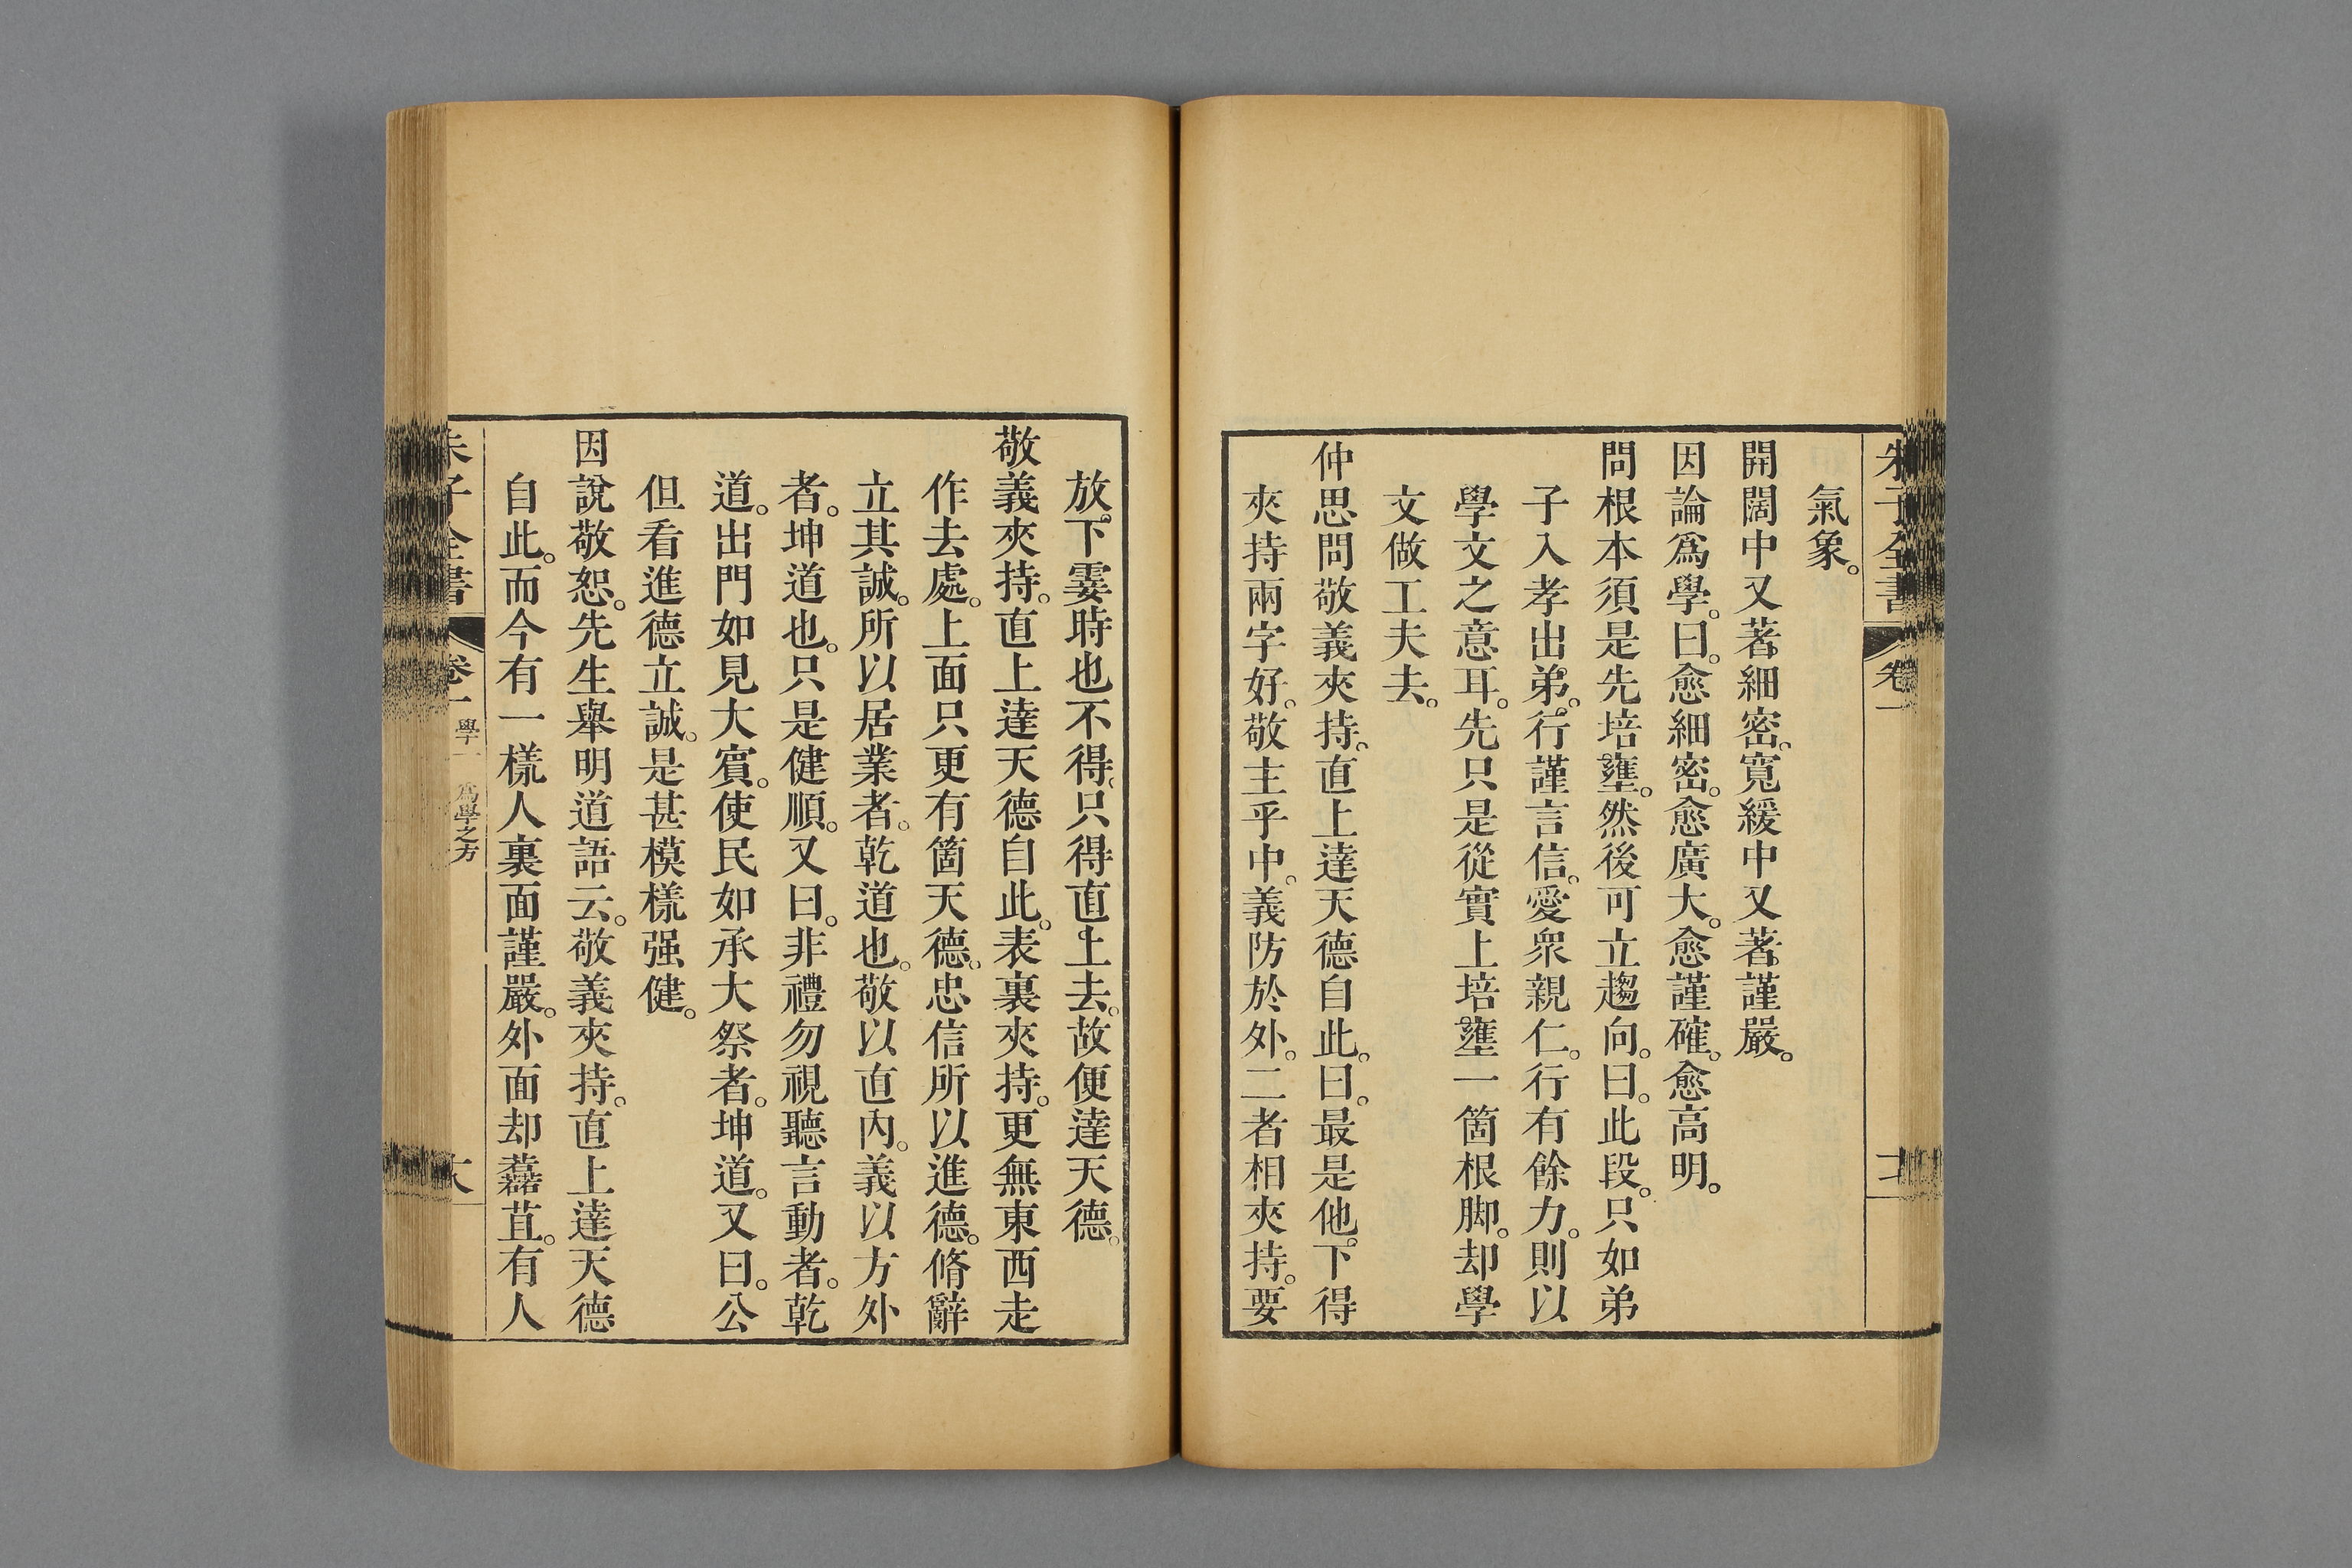 朱子全書 卷一
氣象。
開闊中又著細密、寬緩中又著謹嚴。
因論爲學。曰。愈細密。愈廣大。愈謹確。愈高明。
問根本須是先培壅。然後可立趨向。曰。此段。只如弟
子入孝出弟。行謹言信。愛衆親仁。行有餘力。則以
學文之意耳。先只是從實上培壅一箇根脚。却學
文做工夫去。
仲思問敬義夾持、直上達天德自此。曰。最是他下得
夾持兩字好。敬主乎中。義防於外。二者相夾持。要
放下霎時也不得、只得直上去。故便達天德。
敬義夾持。直上達天德自此。表裏夾持。更無東西走
作去處。上面只更有箇天德。忠信所以進德。脩辭
立其誠。所以居業者。乾道也。敬以直內。義以方外
者。坤道也。只是健順。又曰。非禮勿視聽言動者。乾
道。出門如見大賓。使民如承大祭者。坤道。又曰。公
但看進德立誠。是甚模樣强健。
因說敬恕。先生舉明道語云。敬義夾持。直上達天德
自此。而今有一樣人裏面謹嚴。外面却蠚苴。有人
朱子全書 卷一 學一 爲學之方